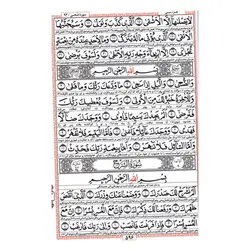 لَا يَصْلٰىهَآ اِلَّا الْاَشْقَى الَّذِيْ كَذَّبَ وَتَوَلّٰى وَسَيُجَنَّبُهَا
الْاَتْقَى الَّذِيْ يُؤْتِيْ مَالَهٗ يَتَزَكّٰى وَمَا لِاَحَدٍ عِنْدَهٗ مِنْ
نِّعْمَةٍ تُجْزٰٓى اِلَّا ابْتِغَآءَ وَجْهِ رَبِّهِ الْاَعْلٰى وَلَسَوْفَ يَرْضٰى
بِسْمِ اللّٰهِ الرَّحْمٰنِ الرَّحِيْمِ
وَالضُّحٰى وَالَّيْلِ اِذَا سَجٰى مَا وَدَّعَكَ رَبُّكَ وَمَا قَلٰى
وَلَلْاٰخِرَةُ خَيْرٌ لَّكَ مِنَ الْاُوْلٰى وَلَسَوْفَ يُعْطِيْكَ رَبُّكَ
فَتَرْضٰى اَلَمْ يَجِدْكَ يَتِيْمًا فَاٰوٰى وَوَجَدَكَ ضَآلًّا
فَهَدٰى وَوَجَدَكَ عَآئِلًا فَاَغْنٰى فَاَمَّا الْيَتِيْمَ فَلَا
تَقْهَرْ وَاَمَّا السَّآئِلَ فَلَا تَنْهَرْ وَاَمَّا بِنِعْمَةِ رَبِّكَ فَحَدِّثْ
بِسْمِ اللّٰهِ الرَّحْمٰنِ الرَّحِيْمِ
اَلَمْ نَشْرَحْ لَكَ صَدْرَكَ وَوَضَعْنَا عَنْكَ وِزْرَكَ الَّذِيْٓ
اَنْقَضَ ظَهْرَكَ وَرَفَعْنَا لَكَ ذِكْرَكَ فَاِنَّ مَعَ الْعُسْرِ
يُسْرًا اِنَّ مَعَ الْعُسْرِ يُسْرًا فَاِذَا فَرَغْتَ فَانْصَبْ وَاِلٰى رَبِّكَ فَارْغَبْ